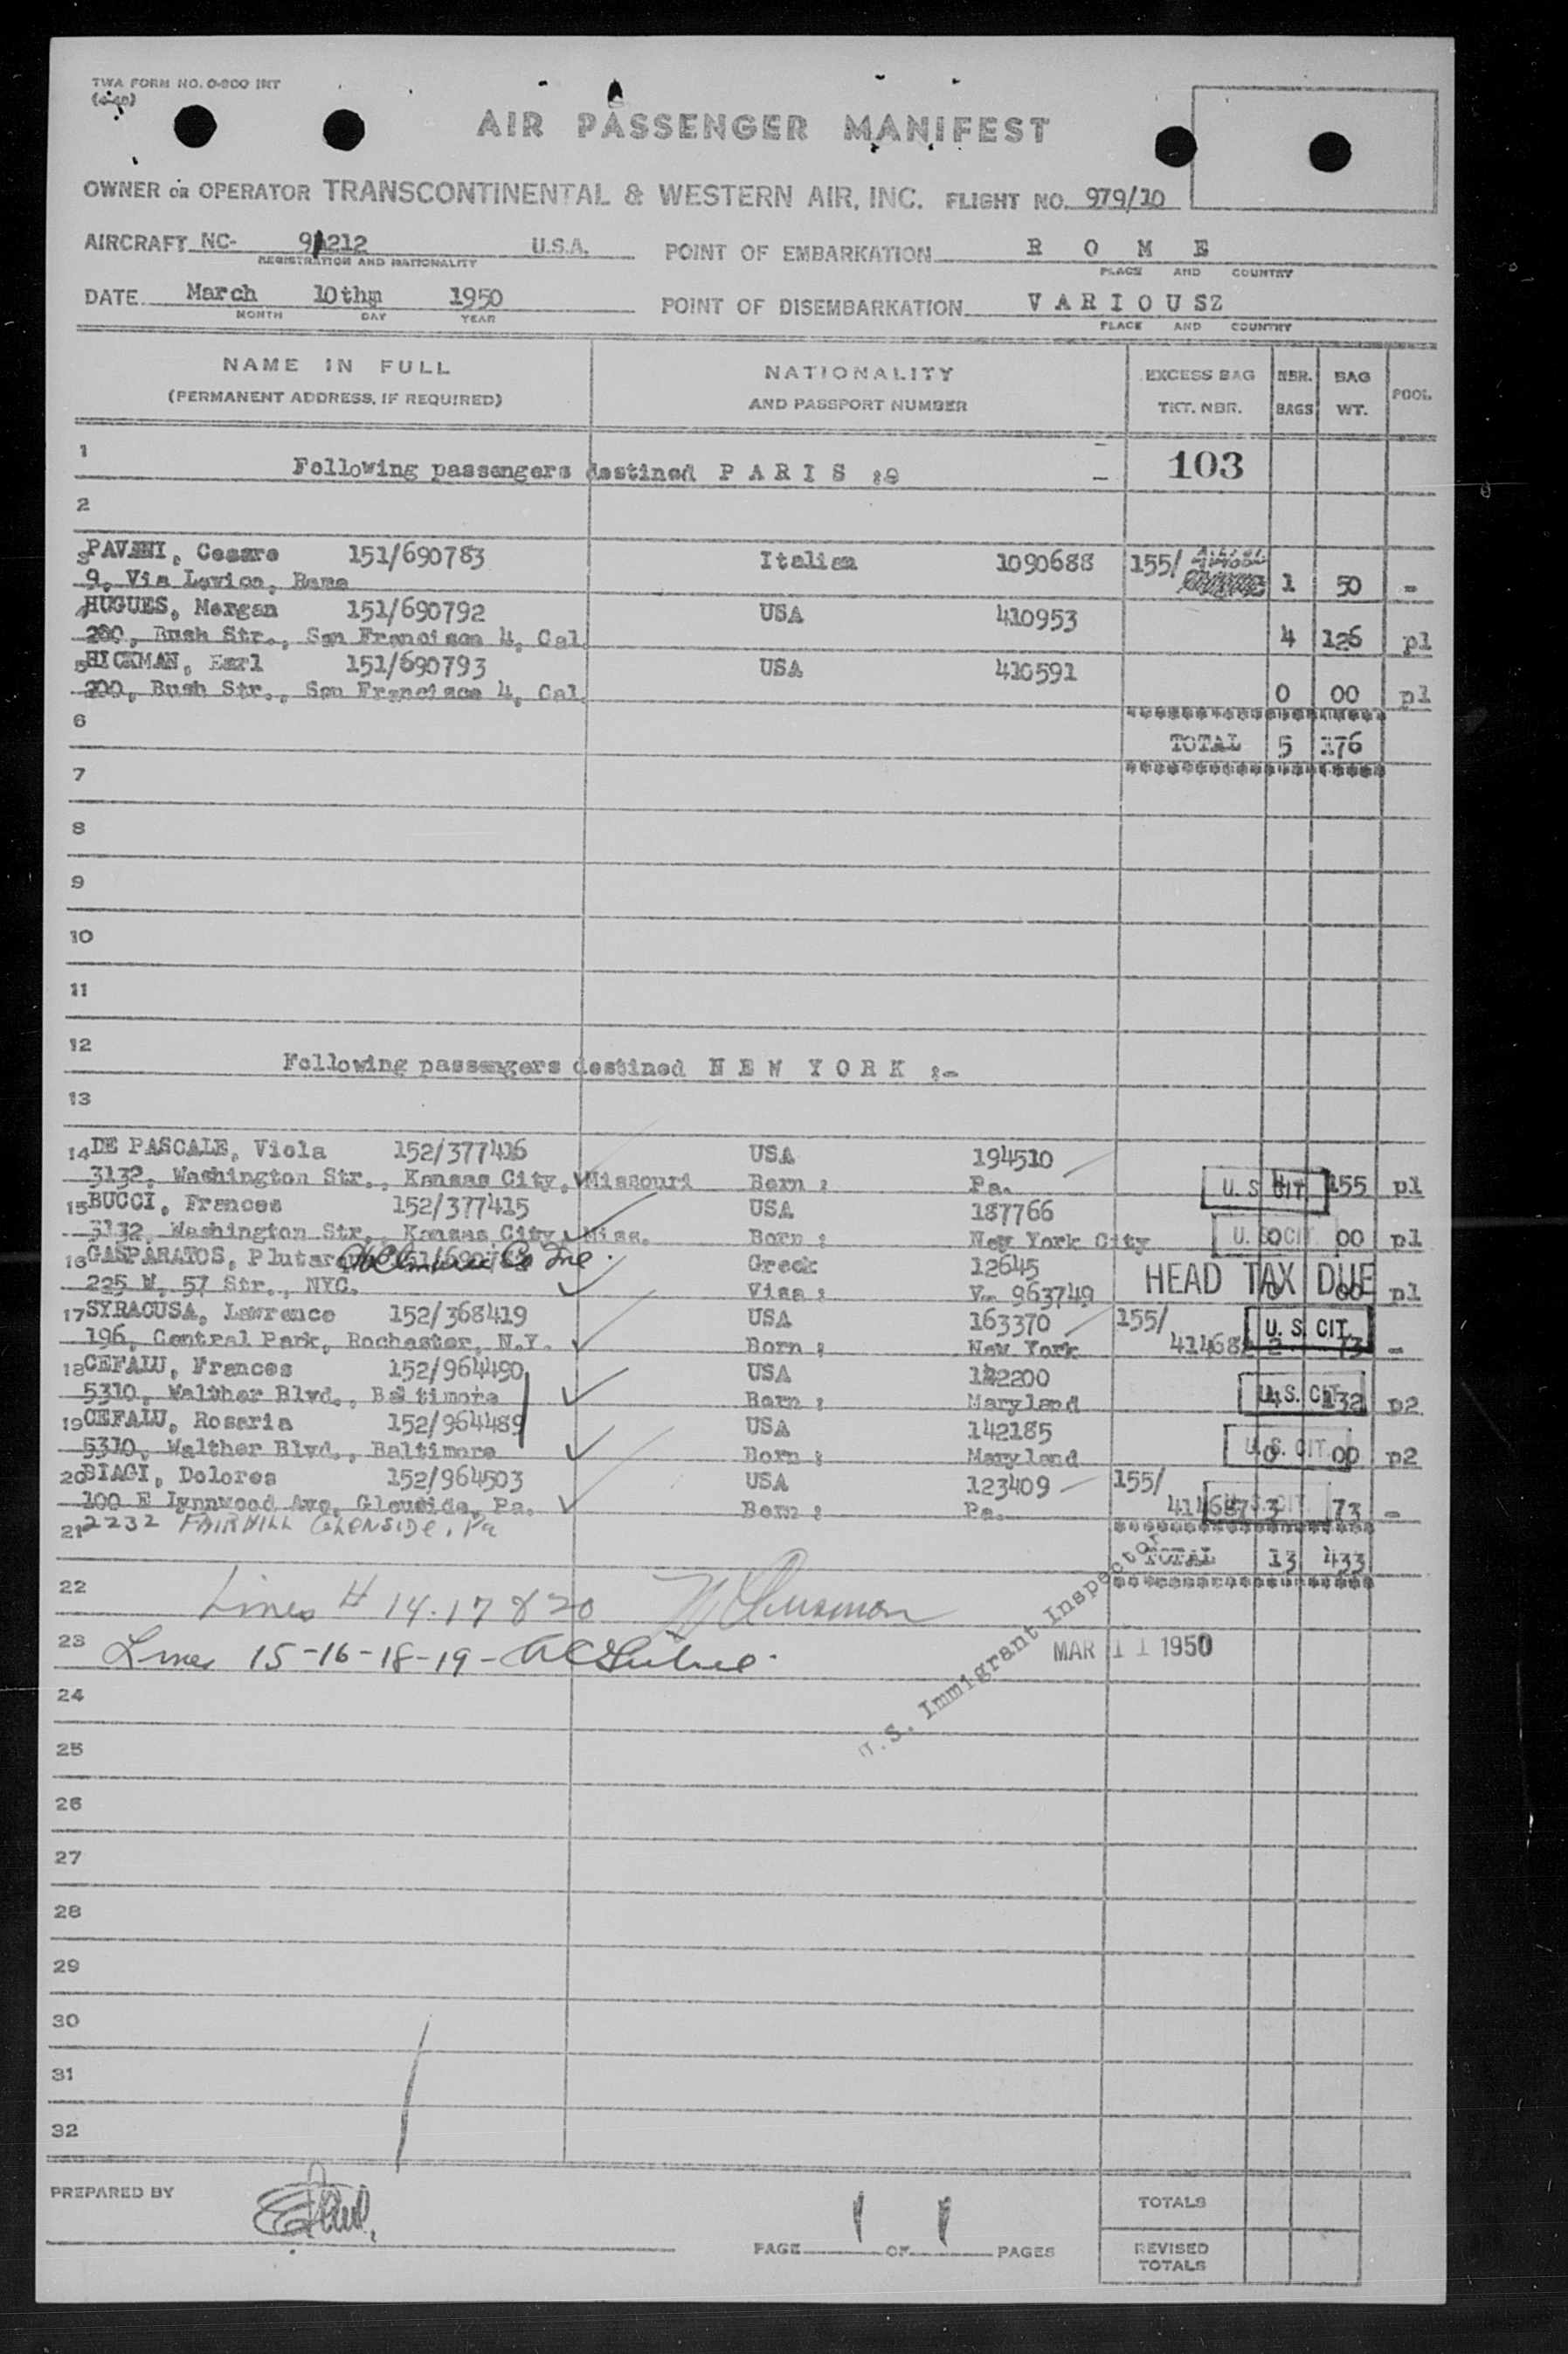 TWA FORM NO. 0-800 INT
AIR PASSENGER MANIFEST
OWNER OR OPERATOR TRANSCONTINENTAL & WESTERN AIR, INC. FLIGHT NO. 979/10
AIRCRAFT NC- 91212 U.S.A. POINT OF EMBARKATION R O M E
REGISTRATION AND NATIONALITY PLACE AND COUNTRY
DATE March 10thm 1950 POINT OF DISEMBARKATION V A R I O U SZ
MONTH DAY YEAR PLACE AND COUNTRY
NAME IN FULL NATIONALITY EXCESS BAG NBR. BAG POOL
(PERMANENT ADDRESS, IF REQUIRED) AND PASSPORT NUMBER TKT. NBR. BAGS WT.
1 Following passengers destined P A R I S : - 103
2
3 PAVANI, Cesare 151/690783 Italian 1090688 155/
9, Via Levico, Rome 1 50 -
4 HUGUES, Morgan 151/690792 USA 410953
200, Bush Str., San Francisco 4, Cal. 4 126 pl
5 HICKMAN, Earl 151/690793 USA 410591
200, Bush Str., San Francisco 4, Cal. 0 00 pl
6
TOTAL 5 176
7
8
9
10
11
12
Following passengers destined N E W Y O R K :-
13
14 DE PASCALE, Viola 152/377416 USA 194510
3132, Washington Str., Kansas City, Missouri Born : Pa. U.S. CIT. 4 155 pl
15 BUCCI, Frances 152/377415 USA 187766
3132, Washington Str., Kansas City Miss. Born : New York City U.S. CIT. 0 00 pl
16 GASPARATOS, Plutar Greek 12645
225 W, 57 Str., NYC. Visa : V. 963749 HEAD TAX DUE 0 00 pl
17 SYRACUSA, Lawrence 152/368419 USA 163370 155/
196, Central Park, Rochester, N.Y. Born : New York 414684 2 U.S. CIT. 73 -
18 CEFALU, Frances 152/964490 USA 122200
5310, Walther Blvd., Baltimore Born : Maryland U.S. CIT. 4 132 p2
19 CEFALU, Rosaria 152/964489 USA 142185
5310, Walther Blvd., Baltimore Born : Maryland U.S. CIT. 0 00 p2
20 BIAGI, Dolores 152/964503 USA 123409 155/
100 E Lynnwood Ave, Glenside, Pa. Born : Pa. 414687 3 U.S. CIT. 73 -
21 2232 FAIRHILL GLENSIDE, Pa
TOTAL 13 433
22 Lines # 14-17 & 20
23 Lines 15-16-18-19-
U.S. Immigrant Inspector
MAR 11 1950
24
25
26
27
28
29
30
31
32
PREPARED BY TOTALS
PAGE 1 OF 1 PAGES REVISED TOTALS